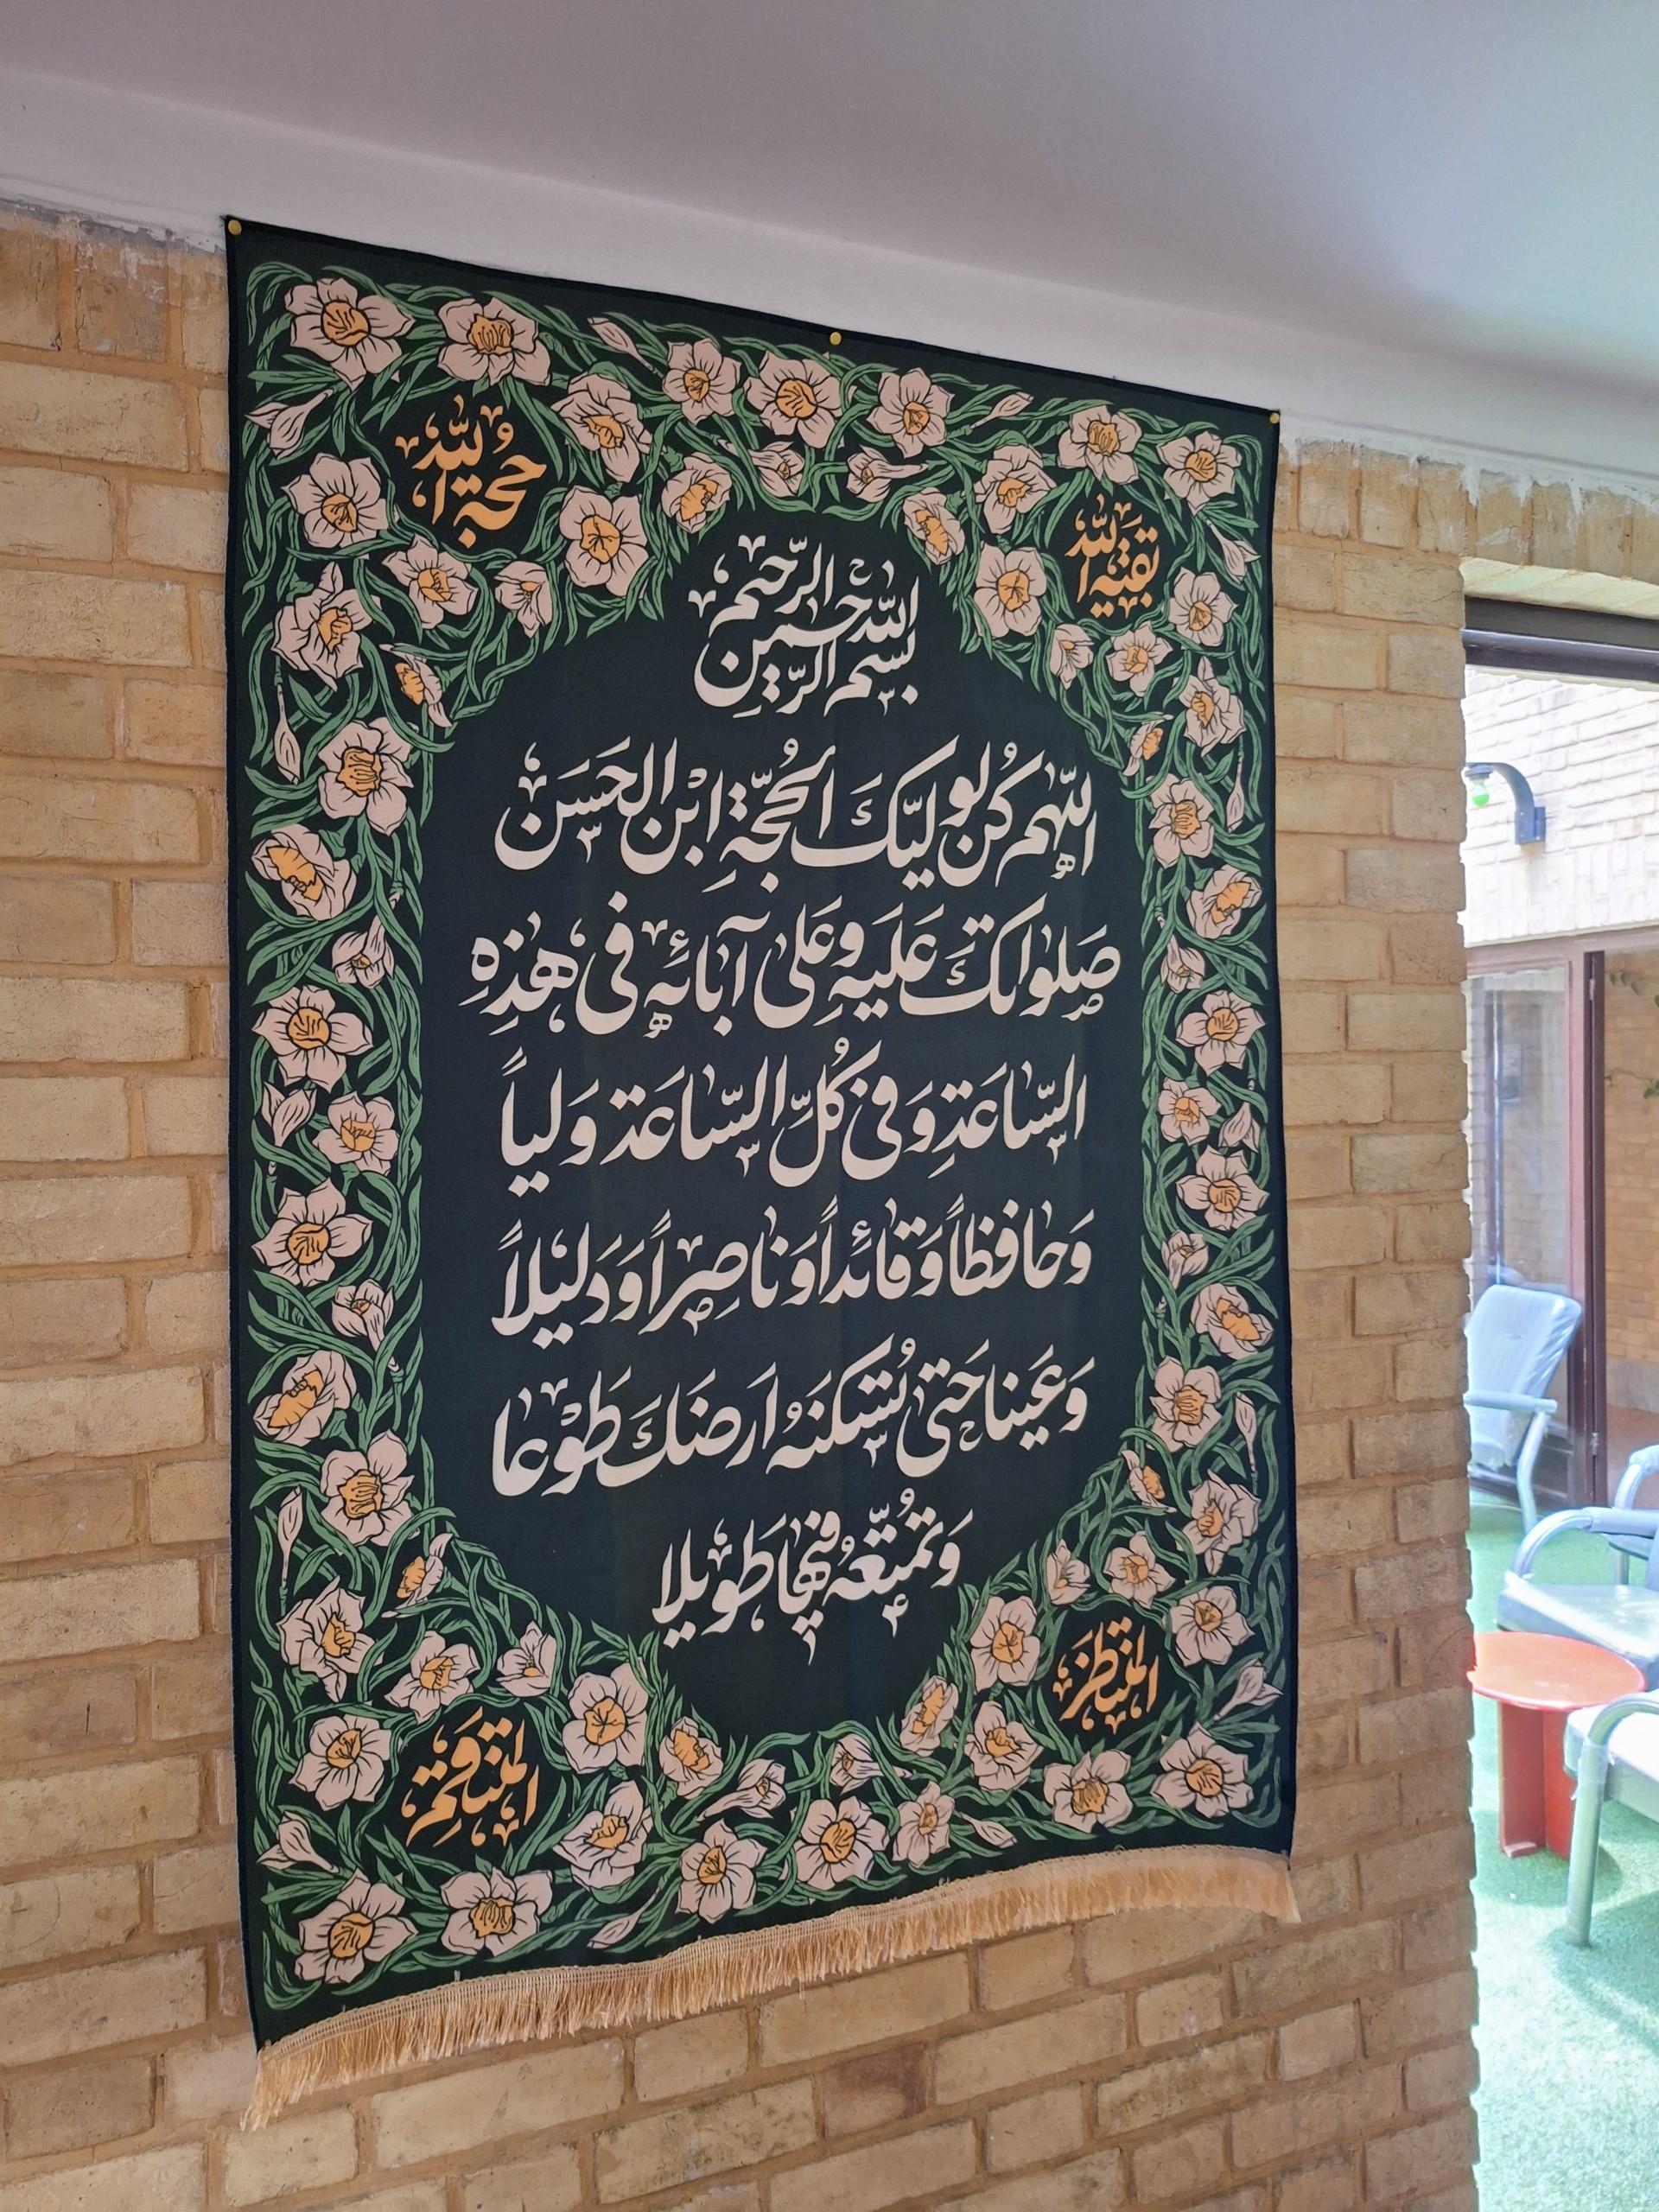 بقیة الله
حجة الله
بسم الله الرحمن الرحیم
اللهم كُن لولیّكَ الحُجّةِ ابْن الحَسَن
صلواتكَ عَلَیهِ وعَلی آبائهِ فی هذِهِ
السّاعَةِ وَفی كُلِّ السّاعَة وَلیاً
وَحافظاً وَقائداً وَناصِراً وَدَلیلاً
وَعَینا حَتی تُسكنَهُ اَرضَكَ طَوْعا
وَتمُتّعَهُ فیها طَویلا
المنتظَر
المنتقم